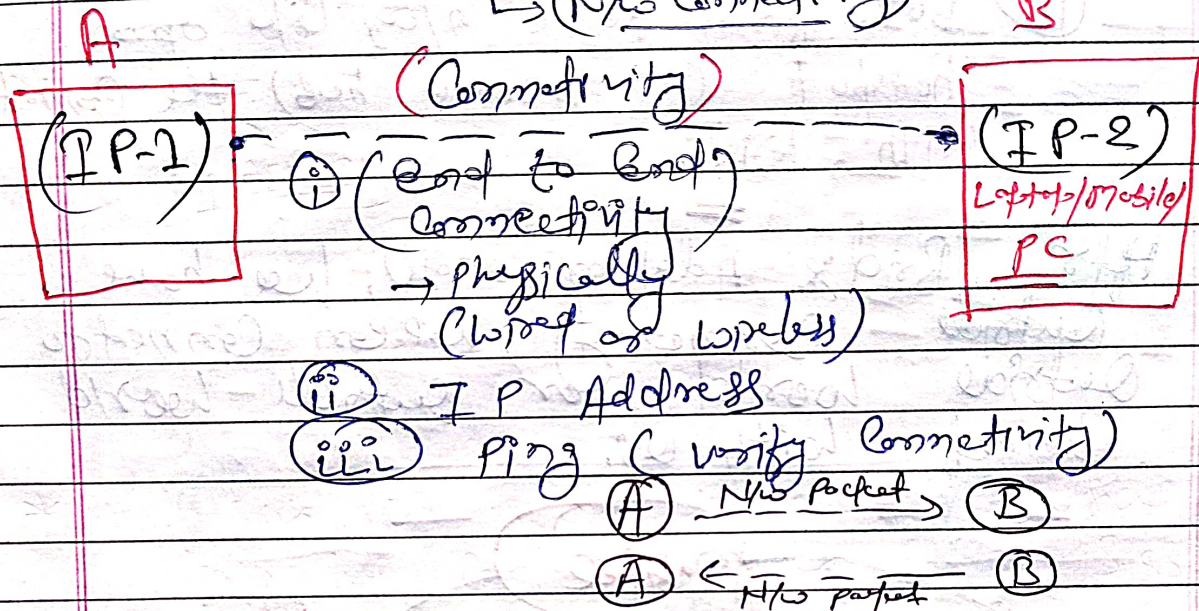 ↳ (N/w Connectivity)
A
B
(Connectivity)
(IP-1)
(IP-2)
Laptop/Mobile/
PC
(i) (End to End
Connectivity)
→ Physically
(wired or wireless)
(ii) IP Address
(iii) Ping (verify Connectivity)
(A) N/w Packet → (B)
(A) ← N/w Packet (B)